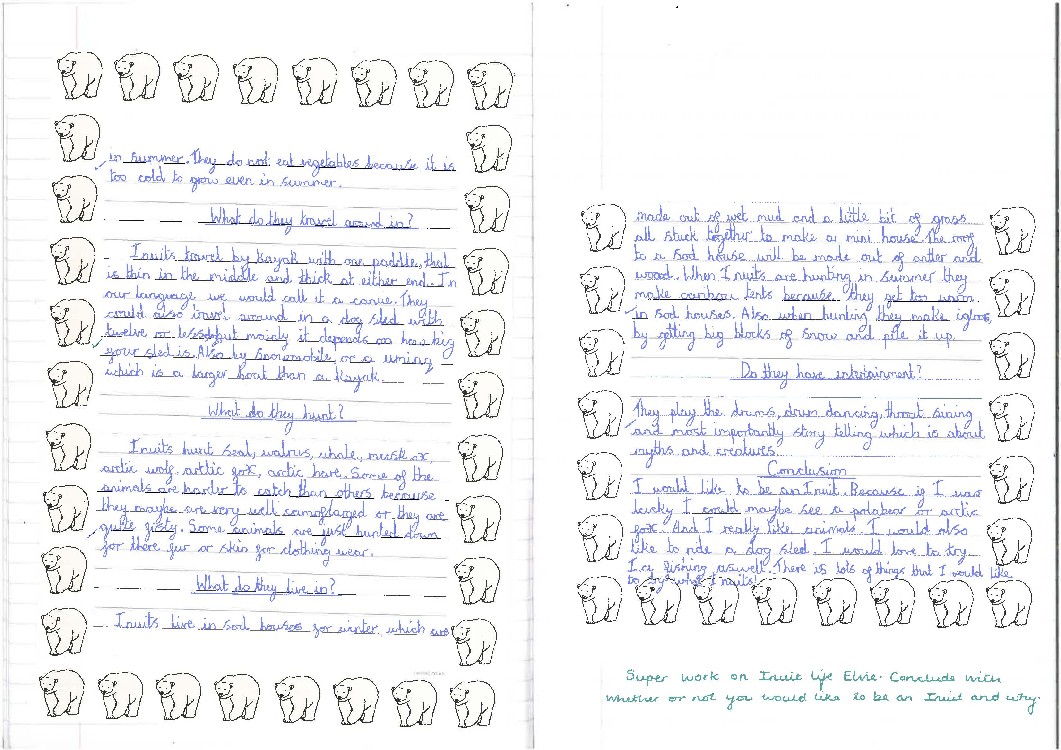 in summer. They do not eat vegetables because it is
too cold to grow even in summer.
What do they travel around in?
Inuits travel by Kayak with one paddle, that
is thin in the middle and thick at either end. In
our language we would call it a canue. They
could also travel around in a dog sled with
twelve or less but mainly it depends on how big
your sled is. Also by snowmobile or a uming
which is a larger boat than a Kayak.
What do they hunt?
Inuits hunt seal, walrus, whale, musk ox,
arctic wolf, arctic fox, arctic hare. Some of the
animals are harder to catch than others because
they maybe are very well camoflarged or they are
quite fisty. Some animals are just hunted down
for there fur or skin for clothing wear.
What do they live in?
Inuits live in sod houses for winter which are
made out of wet mud and a little bit of grass
all stuck together to make a mini house. The roof
to a sod house will be made out of antler and
wood. When Inuits are hunting in summer they
make caribou tents because they get too warm
in sod houses. Also when hunting they make igloos,
by getting big blocks of snow and pile it up.
Do they have entertainment?
They play the drums, drum dancing, throat sining
and most importantly story telling which is about
myths and creatures.
Conclusion
I would like to be an Inuit. Because if I was
lucky I could maybe see a polabear or artic
fox. And I really like animals. I would also
like to ride a dog sled. I would love to try
Icy fishing aswell. There is lots of things that I would like
to by what Inuits!
Super work on Inuit life Elvie. Conclude with
whether or not you would like to be an Inuit and why.